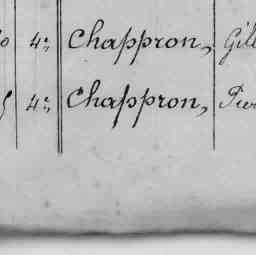 0 4e, Chappron, Gil
4e, Chappron, Pier